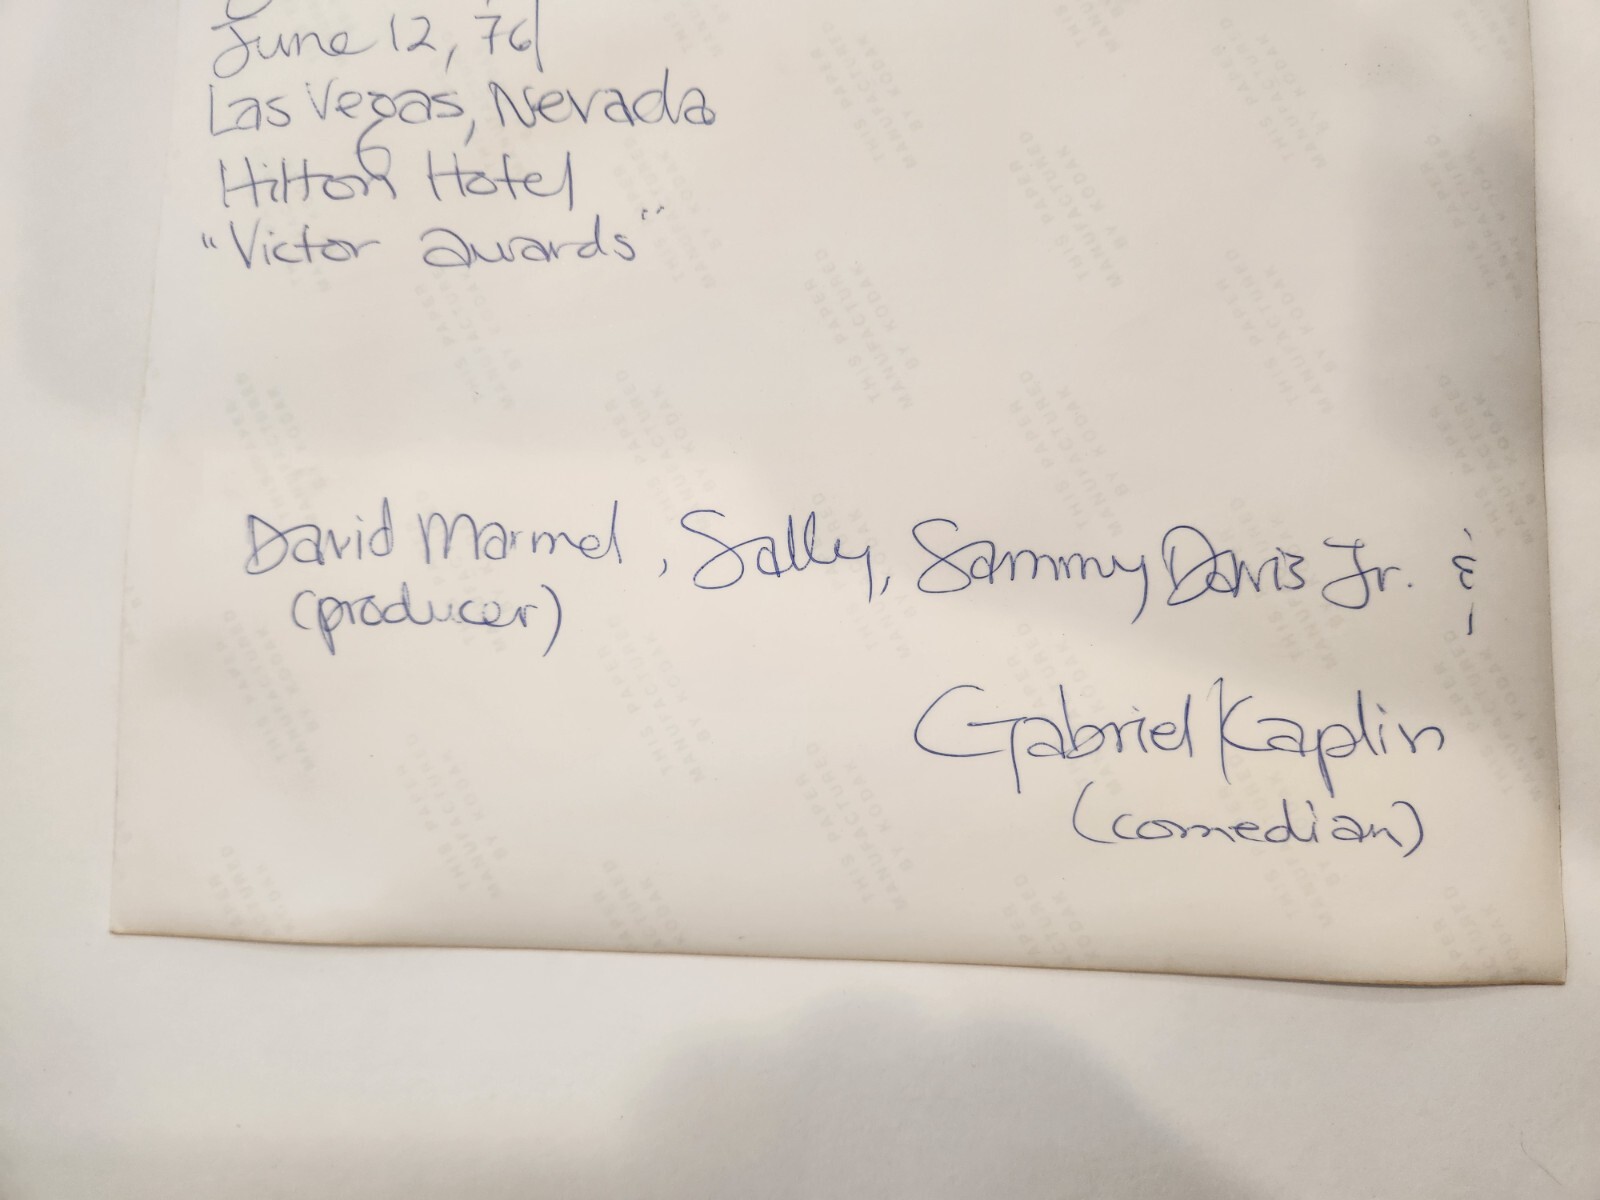 June 12, 76
Las Vegas, Nevada
Hilton Hotel
"Victor awards"
David Marmel, Sally, Sammy Davis Jr. &
(producer)
Gabriel Kaplin
(comedian)
THIS PAPER
MANUFACTURED
BY KODAK